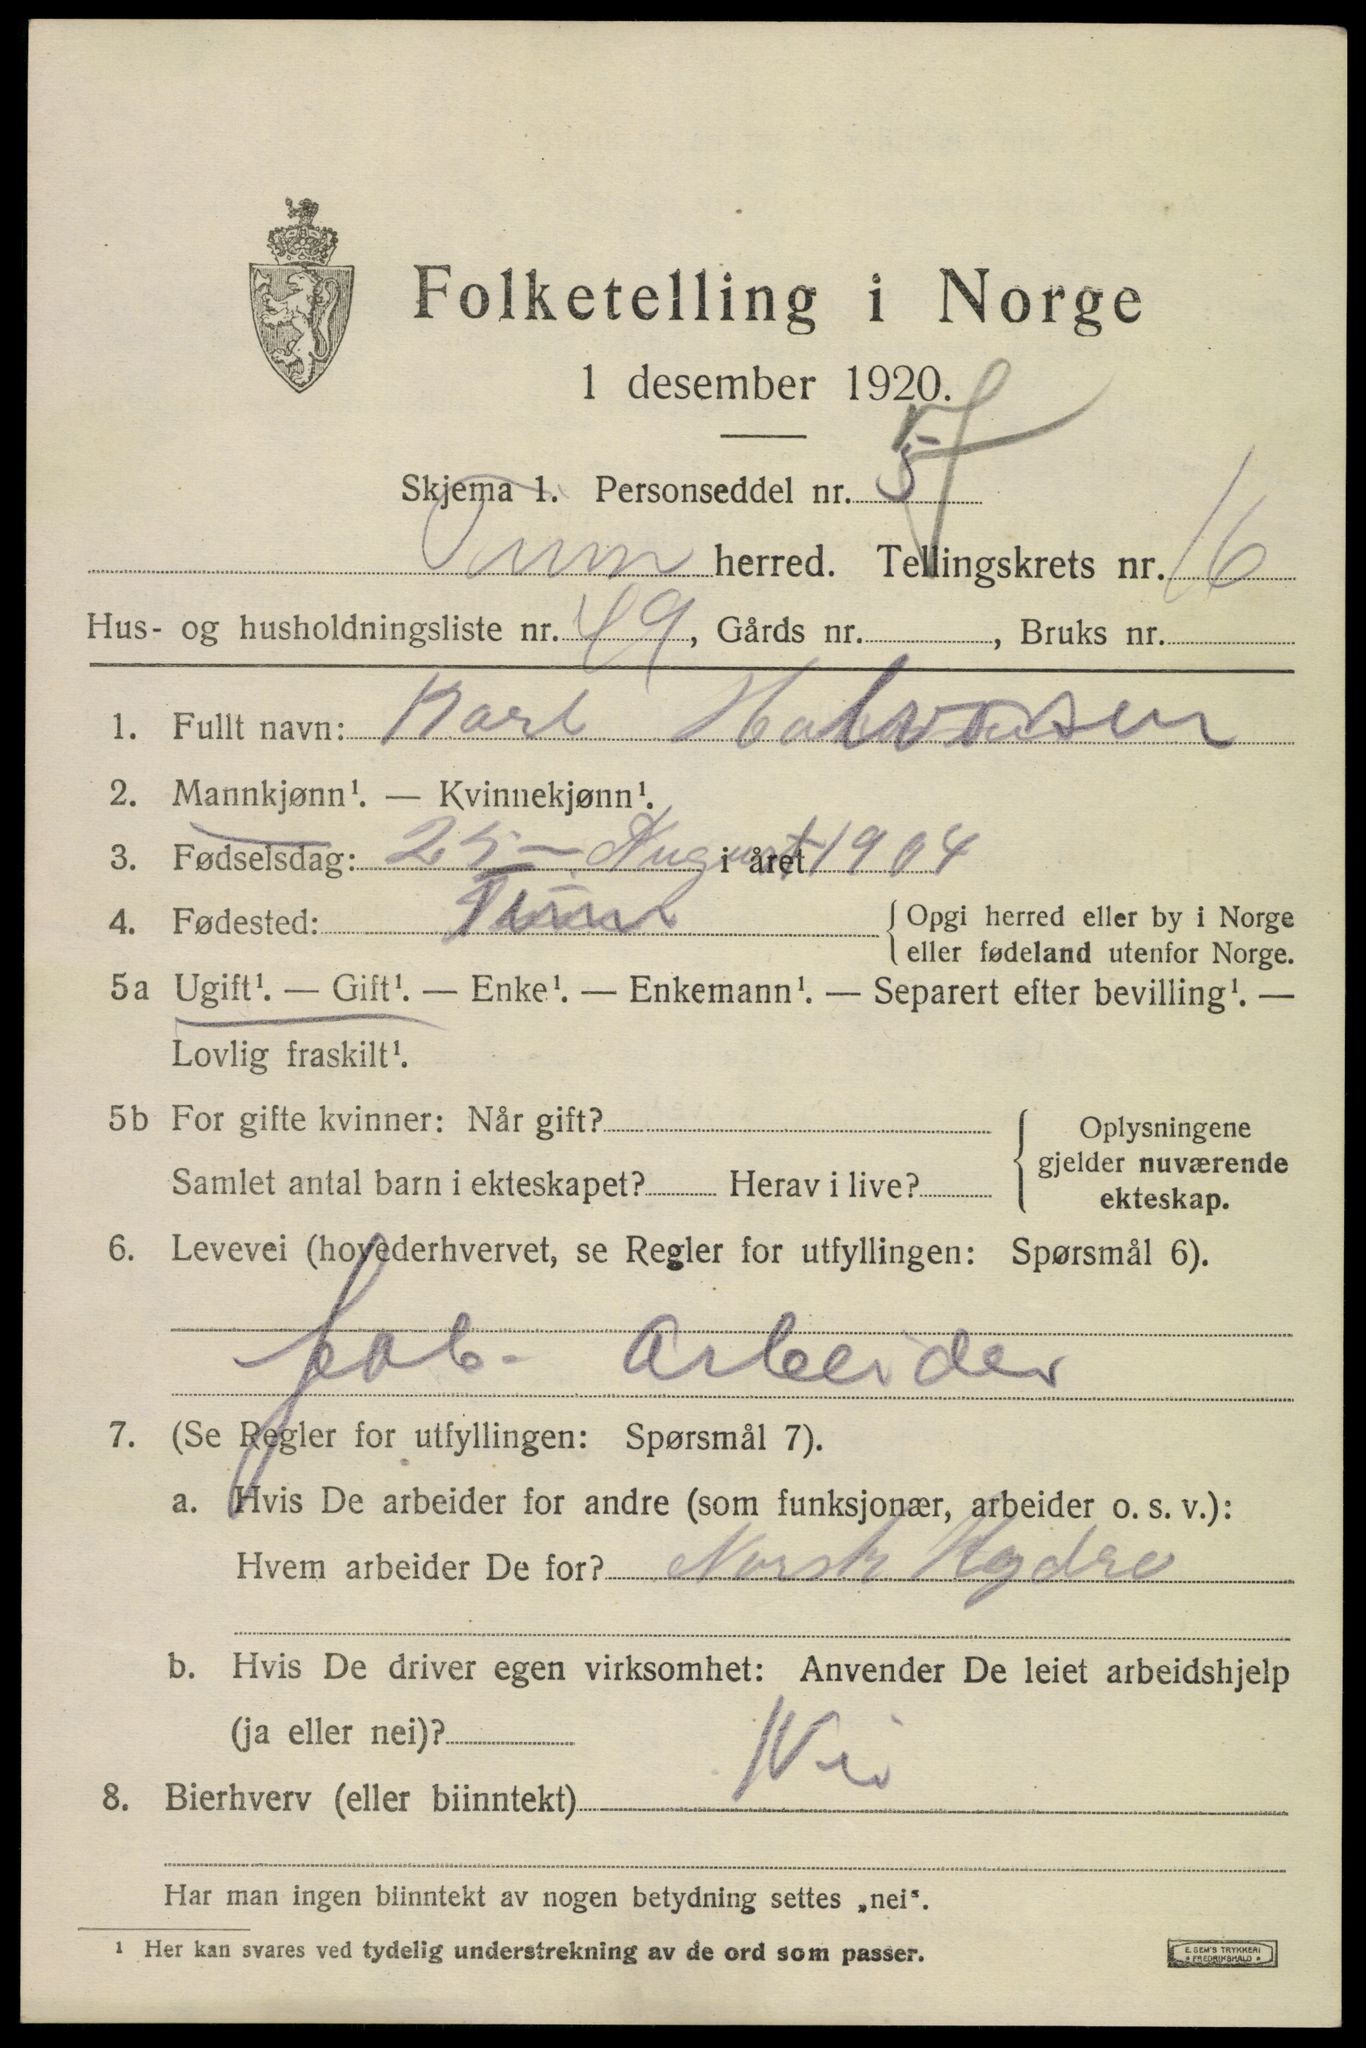 Folketelling i Norge
1 desember 1920.
Skjema 1. Personseddel nr. 5
Tune herred. Tellingskrets nr. 16
Hus- og husholdningsliste nr. 49, Gårds nr. , Bruks nr.
1. Fullt navn: Karl Halvorsen
2. Mannkjønn¹. — Kvinnekjønn¹.
3. Fødselsdag: 25 - August i året 1904
4. Fødested: Tune { Opgi herred eller by i Norge
eller fødeland utenfor Norge.
5a Ugift¹. — Gift¹. — Enke¹. — Enkemann¹. — Separert efter bevilling¹. —
Lovlig fraskilt¹.
5b For gifte kvinner: Når gift?
Samlet antal barn i ekteskapet? Herav i live?
Oplysningene
gjelder nuværende
ekteskap.
6. Levevei (hovederhvervet, se Regler for utfyllingen: Spørsmål 6).
fab- Arbeider
7. (Se Regler for utfyllingen: Spørsmål 7).
a. Hvis De arbeider for andre (som funksjonær, arbeider o. s. v.):
Hvem arbeider De for? Norsk Hydro
b. Hvis De driver egen virksomhet: Anvender De leiet arbeidshjelp
(ja eller nei)?
8. Bierhverv (eller biinntekt) Nei
Har man ingen biinntekt av nogen betydning settes „nei".
¹ Her kan svares ved tydelig understrekning av de ord som passer.
E. SEM'S TRYKKERI
* FREDRIKSHALD *